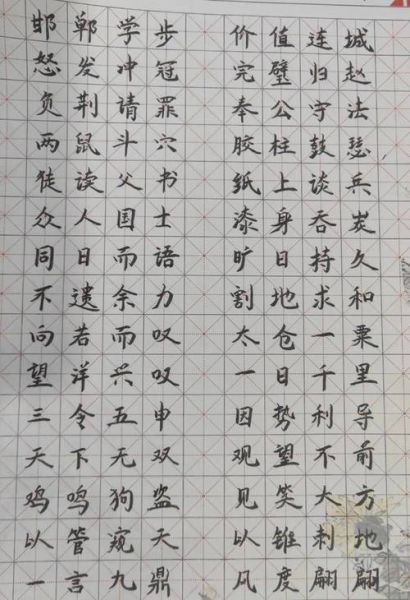 邯郸学步 价值连城
怒发冲冠 完璧归赵
负荆请罪 奉公守法
两鼠斗穴 胶柱鼓瑟
徒读父书 纸上谈兵
众人国士 漆身吞炭
同日而语 旷日持久
不遗余力 割地求和
向若而叹 太仓一粟
望洋兴叹 一日千里
三令五申 因势利导
天下无双 观望不前
鸡鸣狗盗 见笑大方
以管窥天 以锥刺地
一言九鼎 风度翩翩